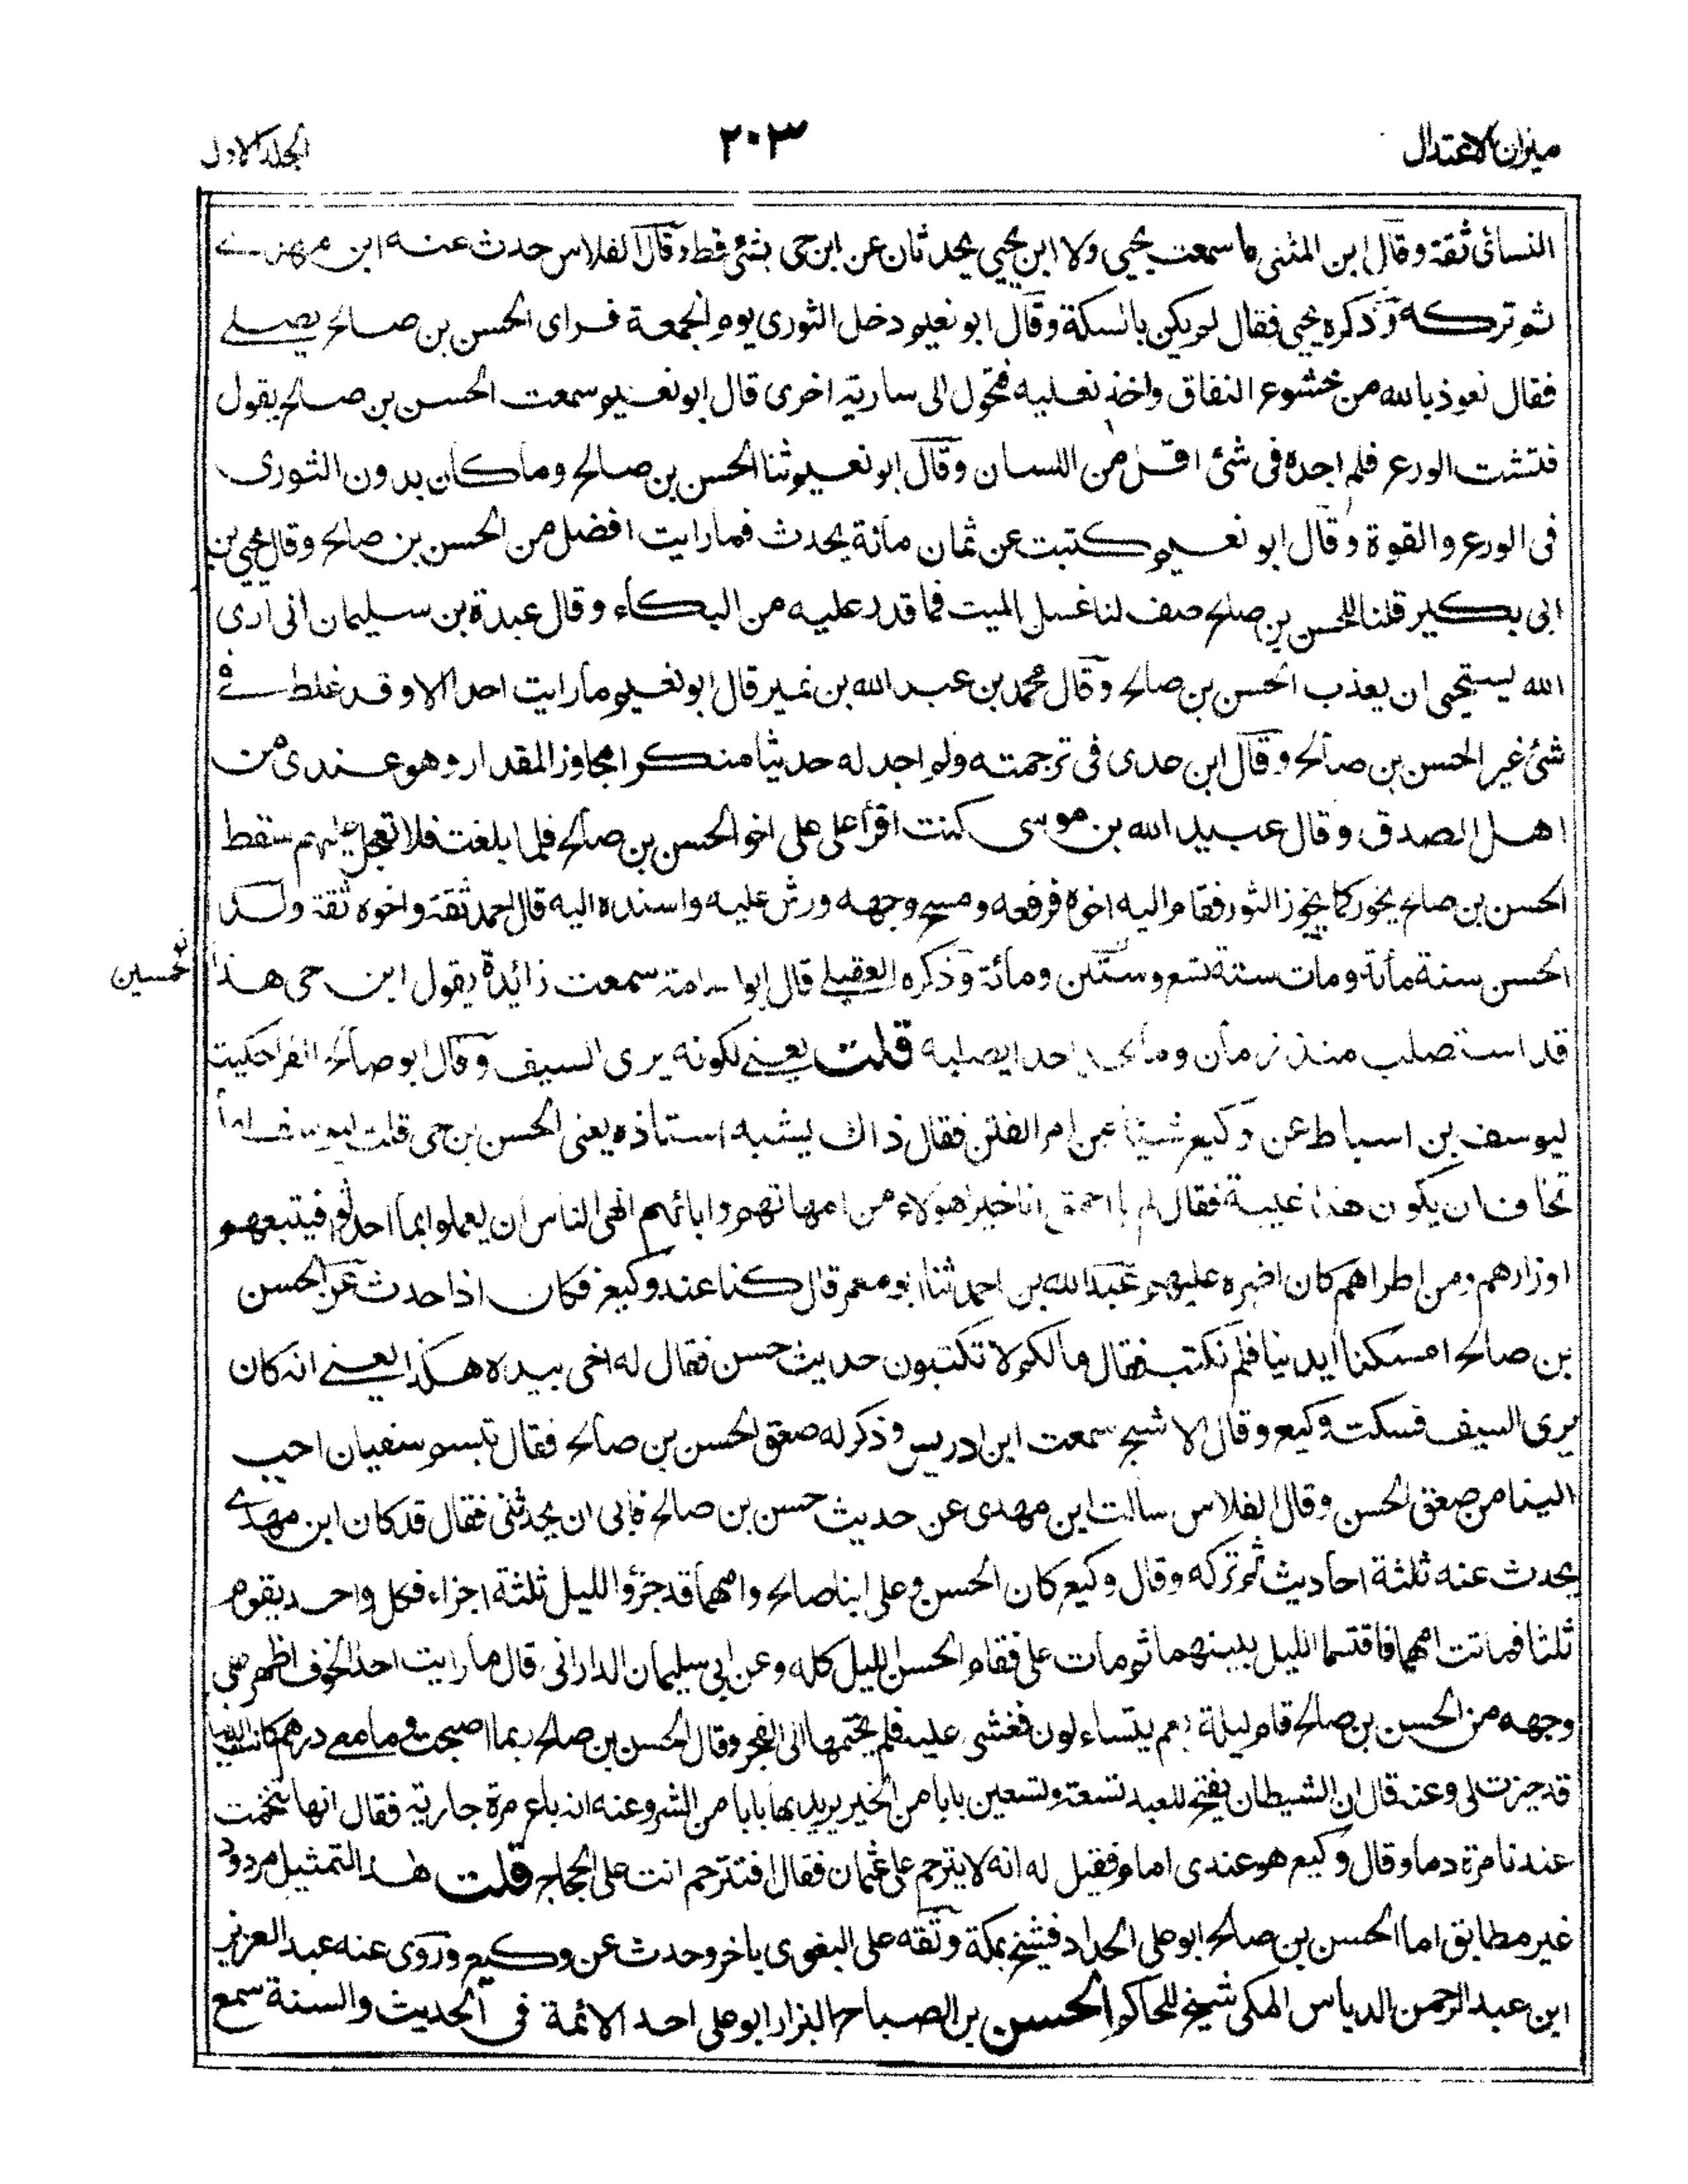 ميزان الاعتدال
٢٠٣
الجلد الاول
النسائى ثقة وقال ابن المثنى ما سمعت يحيى ولا ابن يحيي يحدثان عن ابن حى بشئ قط وقال الفلاس حدث عنه ابن مهدى
ثم تركه وذكره يحيى فقال لم يكن بالسكة وقال ابو نعيم دخل الثورى يوم الجمعة فراى الحسن بن صالح يصلے
فقال نعوذ بالله من خشوع النفاق واخذ نعليه فتحول الى سارية اخرى قال ابو نعيم سمعت الحسن بن صالح يقول
فتشت الورع فلم اجده فى شئ اقل من اللسان وقال ابو نعيم ثنا الحسن بن صالح وما كان بدون الثورى
فى الورع والقوة وقال ابو نعيم كتبت عن ثمان مائة محدث فما رايت افضل من الحسن بن صالح وقال يحيى بن
ابى بكير قلنا للحسن بن صالح صف لنا غسل الميت فما قدر عليه من البكاء وقال عبدة بن سليمان انى ارى
الله يستحيى ان يعذب الحسن بن صالح وقال محمد بن عبد الله بن نمير قال ابو نعيم ما رايت احدا الا وقد غلط فے
شئ غير الحسن بن صالح وقال ابن عدى فى ترجمته ولم اجد له حديثا منكرا مجاوز المقدار وهو عندى من
اهل الصدق وقال عبيد الله بن موسى كنت اقرأ على على اخو الحسن بن صالح فلما بلغت فلا تعجل عليهم سقط
الحسن بن صالح يخور كما يخور الثور فقام اليه اخوه فرفعه ومسح وجهه ورش عليه واسنده اليه قال احمد ثقة واخوه ثقة ولد
الحسن سنة مأئة ومات سنة تسع وستين ومائة وذكره العقيلے قال ابو اسامة سمعت زائدة يقول ابن حى هذا
خمسين
قد استصلب منذ زمان وما نجد احدا يصلبه قلت يعنے لكونه يرى السيف وقال ابو صالح الفرا حكيت
ليوسف بن اسباط عن وكيع شيئا من امر الفتن فقال ذاك يشبه استاذه يعنى الحسن بن حى قلت ليوسف اما
تخاف ان يكون هذا غيبة فقال لم يا احمق انا خير لهؤلاء من امهاتهم وابائهم انهى الناس ان يعملوا بما احدثوا فيتبعهم
اوزارهم ومن اطراهم كان اضر عليهم عبد الله بن احمد ثنا ابو معمر قال كنا عند وكيع فكان اذا حدث عن الحسن
بن صالح امسكنا ايدينا فلم نكتب فقال ما لكم لا تكتبون حديث حسن فقال له اخى بيده هكذا يعنے انه كان
يرى السيف فسكت وكيع وقال الاشج سمعت ابن ادريس وذكر له صعق الحسن بن صالح فقال تبسم سفيان احب
الينا من صعق الحسن وقال الفلاس سالت ابن مهدى عن حديث حسن بن صالح فابى ان يحدثنى فقال قد كان ابن مهدے
يحدث عنه ثلثة احاديث ثم تركه وقال وكيع كان الحسن وعلى ابنا صالح وامهما قد جزؤا الليل ثلثة اجزاء فكل واحد يقوم
ثلثا فماتت امهما فاقتسما الليل بينهما ثم مات على فقام الحسن الليل كله وعن ابى سليمان الدارانى قال ما رايت احدا الخوف اظهر على
وجهه من الحسن بن صالح قام ليلة بعم يتساءلون فغشى عليه فلم يختمها الى الفجر وقال الحسن بن صالح ربما اصبحت وما معے درهم وكان الدنيا
قد حيزت لى وعنه قال ان الشيطان يفتح للعبد تسعة وتسعين بابا من الخير يريد بها بابا من الشر وعنه انه باع مرة جارية فقال انها تنخمت
عندنا مرة دما وقال وكيع هو عندى امام فقيل له انه لا يترحم على عثمان فقال افتترحم انت على الحجاج قلت هذا التمثيل مردود
غير مطابق اما الحسن بن صالح ابو على الحداد فشيخ بمكة وثقه على البغوى باخر وحدث عن وكيع وروى عنه عبد العزيز
ابن عبد الرحمن الدباس المكى شيخ للحاكم الحسن بن الصباح البزار ابو على احد الائمة فى الحديث والسنة سمع